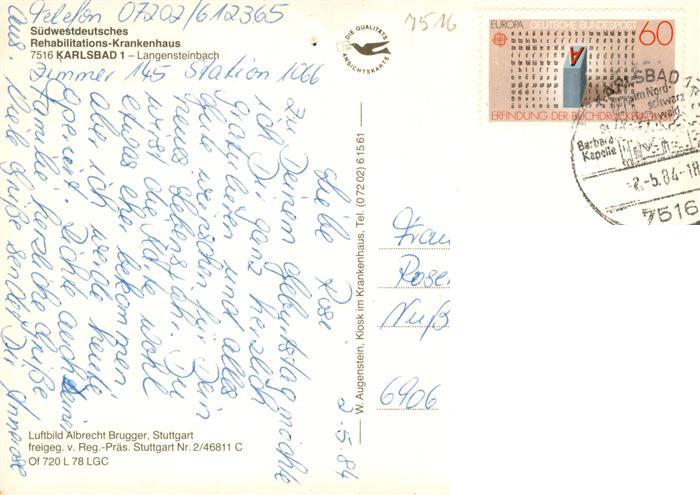 Telefon 07202/612365
Südwestdeutsches
Rehabilitations-Krankenhaus
7516 KARLSBAD 1 – Langensteinbach
Zimmer 145 Station 1066
DIE QUALITÄTS
ANSICHTSKARTE
7516
EUROPA DEUTSCHE BUNDESPOST
60
A
ERFINDUNG DER BUCHDRUCK
KARLSBAD 1
im Nord-
schwarz
wald
Barbara
Kapelle
2-5.84-18
7516
2.5.84
Liebe Rosi
Zu Deinem Geburtstag möchte
ich Dir ganz herzlich
gratulieren und alles
Gute wünschen für Dein
neues Lebensjahr. Du
wirst die Karte wohl
etwas eher bekommen
aber ich werde heute
operiert. Richte auch Deiner
Familie herzliche Grüße
aus. Viel Grüße sendet Dir Annerose
W. Augenstein, Kiosk im Krankenhaus, Tel. (07202) 61561
Frau
Rose
Nuß
6906
Luftbild Albrecht Brugger, Stuttgart
freigeg. v. Reg.-Präs. Stuttgart Nr. 2/46811 C
Of 720 L 78 LGC